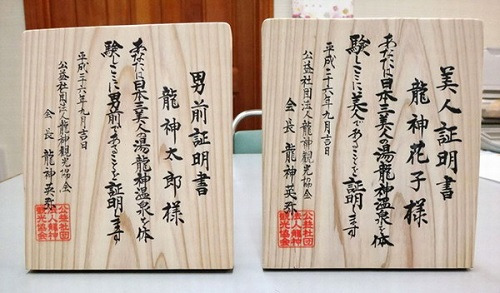 美人証明書
龍神花子様
あなたは日本三美人の湯龍神温泉を体
験しここに美人であることを証明します
平成二六年九月吉日
公益社団法人龍神観光協会
会長 龍神英弥
公益社団
法人龍神
観光協会
男前証明書
龍神太郎様
あなたは日本三美人の湯龍神温泉を体
験しここに男前であることを証明します
平成二六年九月吉日
公益社団法人龍神観光協会
会長 龍神英弥
公益社団
法人龍神
観光協会